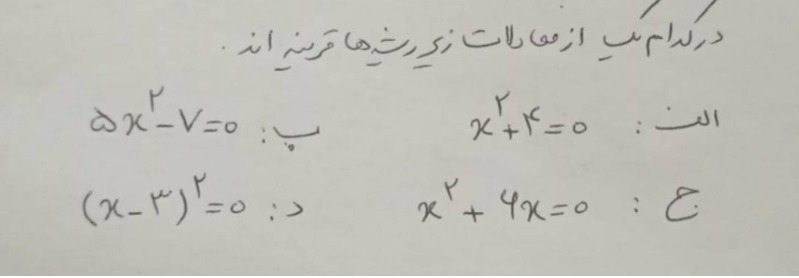 در کدام یک از معادلات زیر ریشه ها قرینه اند.
الف: x²+۴=۰ ب: ۵x²-۷=۰
ج: x²+۶x=۰ د: (x-۳)²=۰